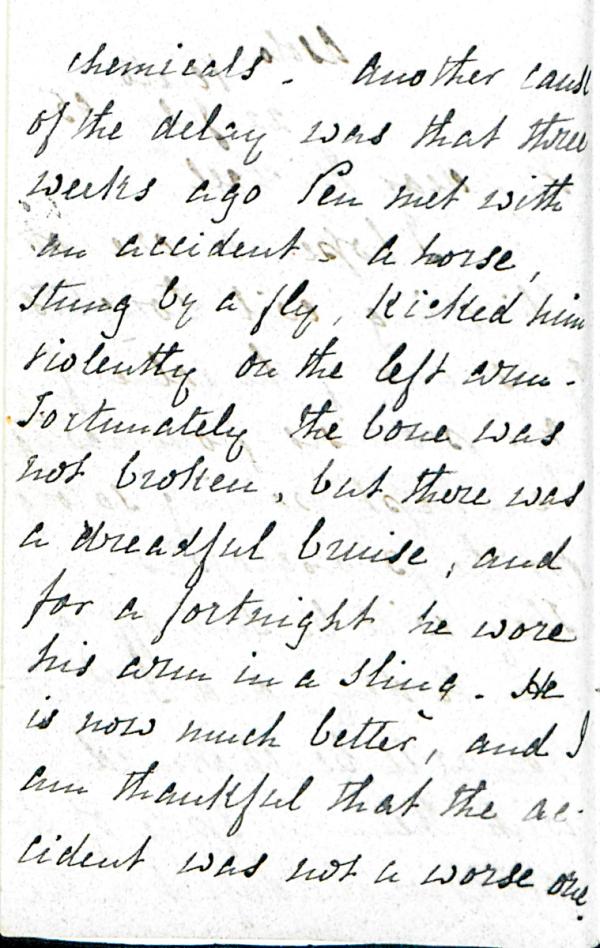 chemicals. Another cause
of the delay was that three
weeks ago Pen met with
an accident. A horse,
stung by a fly, kicked him
violently on the left arm.
Fortunately the bone was
not broken, but there was
a dreadful bruise, and
for a fortnight he wore
his arm in a sling. He
is now much better, and I
am thankful that the ac-
cident was not a worse one.